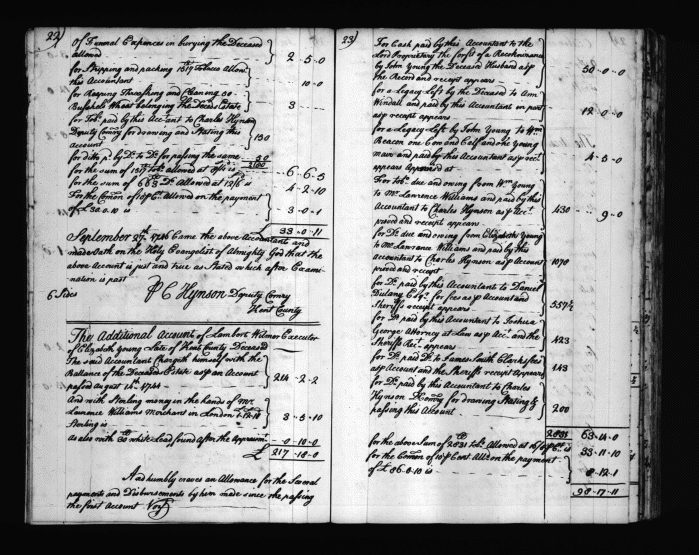 22)
Of Funeral Expences in burying the Deceased
allowed 2-5-0
for Stripping and packing 1317 Tobacco Allow
this Accountant 10-0
for Reaping Threashing and Cleaning 30
Bushels Wheat belonging the Deceds Estate 3
for Tobo. paid by this Accountant to Charles Hynson
Deputy Comry for drawing and Stating this
Account 130
for ditto pd. by Do. to Do. for passing the same
for the sum of 1317 tobo. allowed at is 6-6-5
for the sum of 663 Do. Allowed at 12/6 is 4-2-10
For the Comon of 10 P Ct. Allowed on the payment
of £ 30.0.10 is 3-0-1
£ 33-0-11
September 27th. 1746 Came the above Accountant and
made Oath on the Holy Evangelist of Almighty God that the
above Account is just and true as Stated which after Exami-
nation is past
6 Sides P C Hynson Deputy Comry
Kent County
The Additional Account of Lambert Wilmer Executor
of Elizabeth Young Late of Kent County Deceased
The said Accountant Chargeth himself with the
Ballance of the Deceased Estate as p an Account
passed August 1744 214-2-2
And with Sterling money in the hands of Mr.
Lawrence Williams Merchant in London
Sterling is 3-5-10
As also with 30 white Lead found after the Appraism. 0-10-0
£ 217-18-0
And humbly craves an Allowance for the Several
payments and Disbursements by him made since the passing
the first Account Vizt
23)
For Cash paid by this Accountant to the
Lord Proprietary the forfit of a Recohnizance
by John Young the Deceased Husband as p
the Record and receipt appears 50-0-0
for a Legacy Left by the Deceased to Ann
Windall and paid by this Accountant on part
as p receipt appears 12-0-0
for a Legacy Left by John Young to Wm
Beacon one Cow and Calf and one Young
mare and paid by this Accountant as p rect.
appears 4-5-0
For tobo. due and owing from Wm Young
to Mr. Lawrence Williams and paid by this
Accountant to Charles Hynson as p Acct.
proved and receipt appears 430 9-0
for Do. due and owing from Elizabeth Young
to Mr. Lawrance Williams and paid by this
accountant to Charles Hynson as p Account
proved and receipt 1070
for Do. paid by this Accountant to Daniel
Dulany Esqr. for fees as p Account and
Sheriffs receipt appears 557½
for Do. paid by this Accountant to Joshua
George Attorney at Law as p Acct. and the
Sheriffs Rect. appears 423
for Do. paid Do. to James Smith Clarks fees
as p Account and the Sheriffs receipt Appears 143
for Do. paid by this Accountant to Charles
Hynson Comry for drawing Stating &
passing this Account 200
2831 63-14-0
for the above Sum of 2831 tobo. Allowed at P Ct. is 33-11-10
for the Comon of 10 P Cent Alld. on the payment
of £ 86-0-10 is 8-12-1
98-17-11